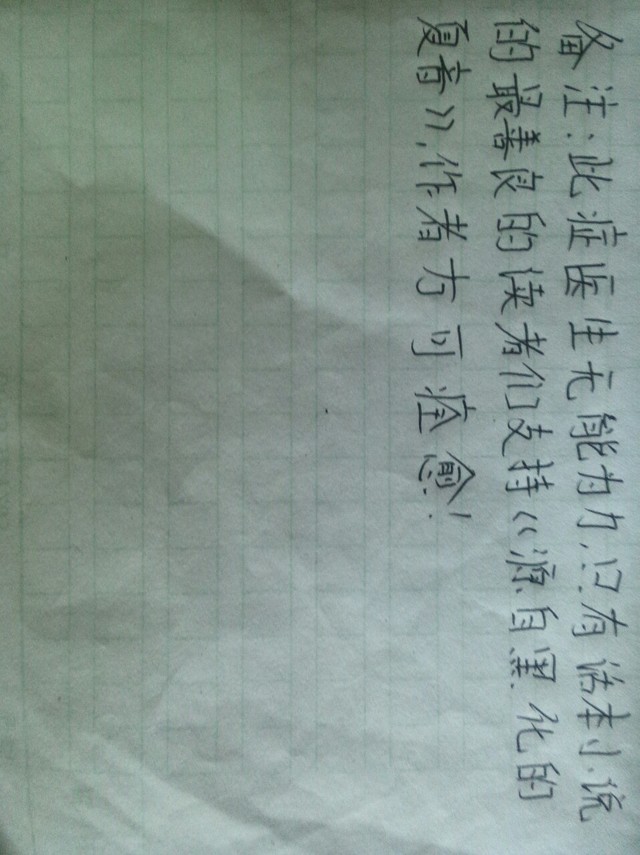 备注:此症医生无能为力,只有话本小说
的最善良的读者们支持《源自黑化的
夏音》,作者方可痊愈!